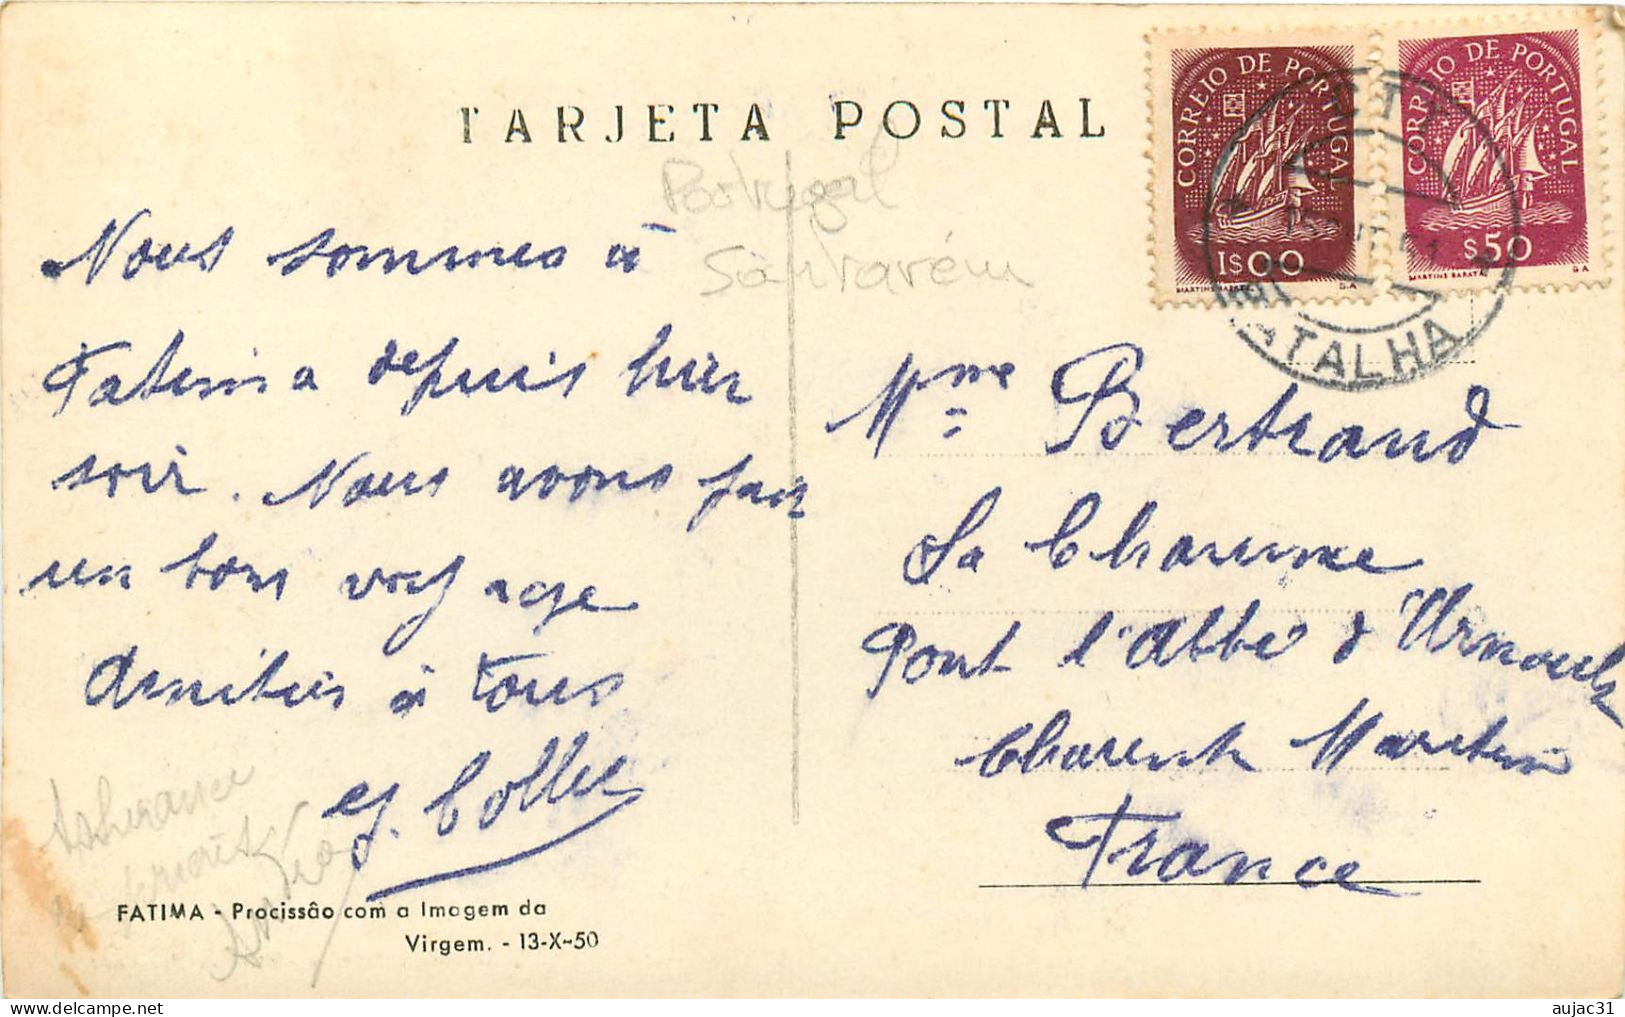 TARJETA POSTAL
Portugal
Santarém
CORREIO DE PORTUGAL
1$00
MARTINS BARATA G.A
CORREIO DE PORTUGAL
$50
MARTINS BARATA G.A
BATALHA
Nous sommes à
Fatima depuis hier
soir. Nous avons fait
un bon voyage
Amitiés à tous
Mme Bertrand
La Charme
Pont l'abbé d'Arnoult
Charente Maritime
France
FATIMA - Procissão com a Imagem da
Virgem. - 13-X-50
Delcampe.net
aujac31